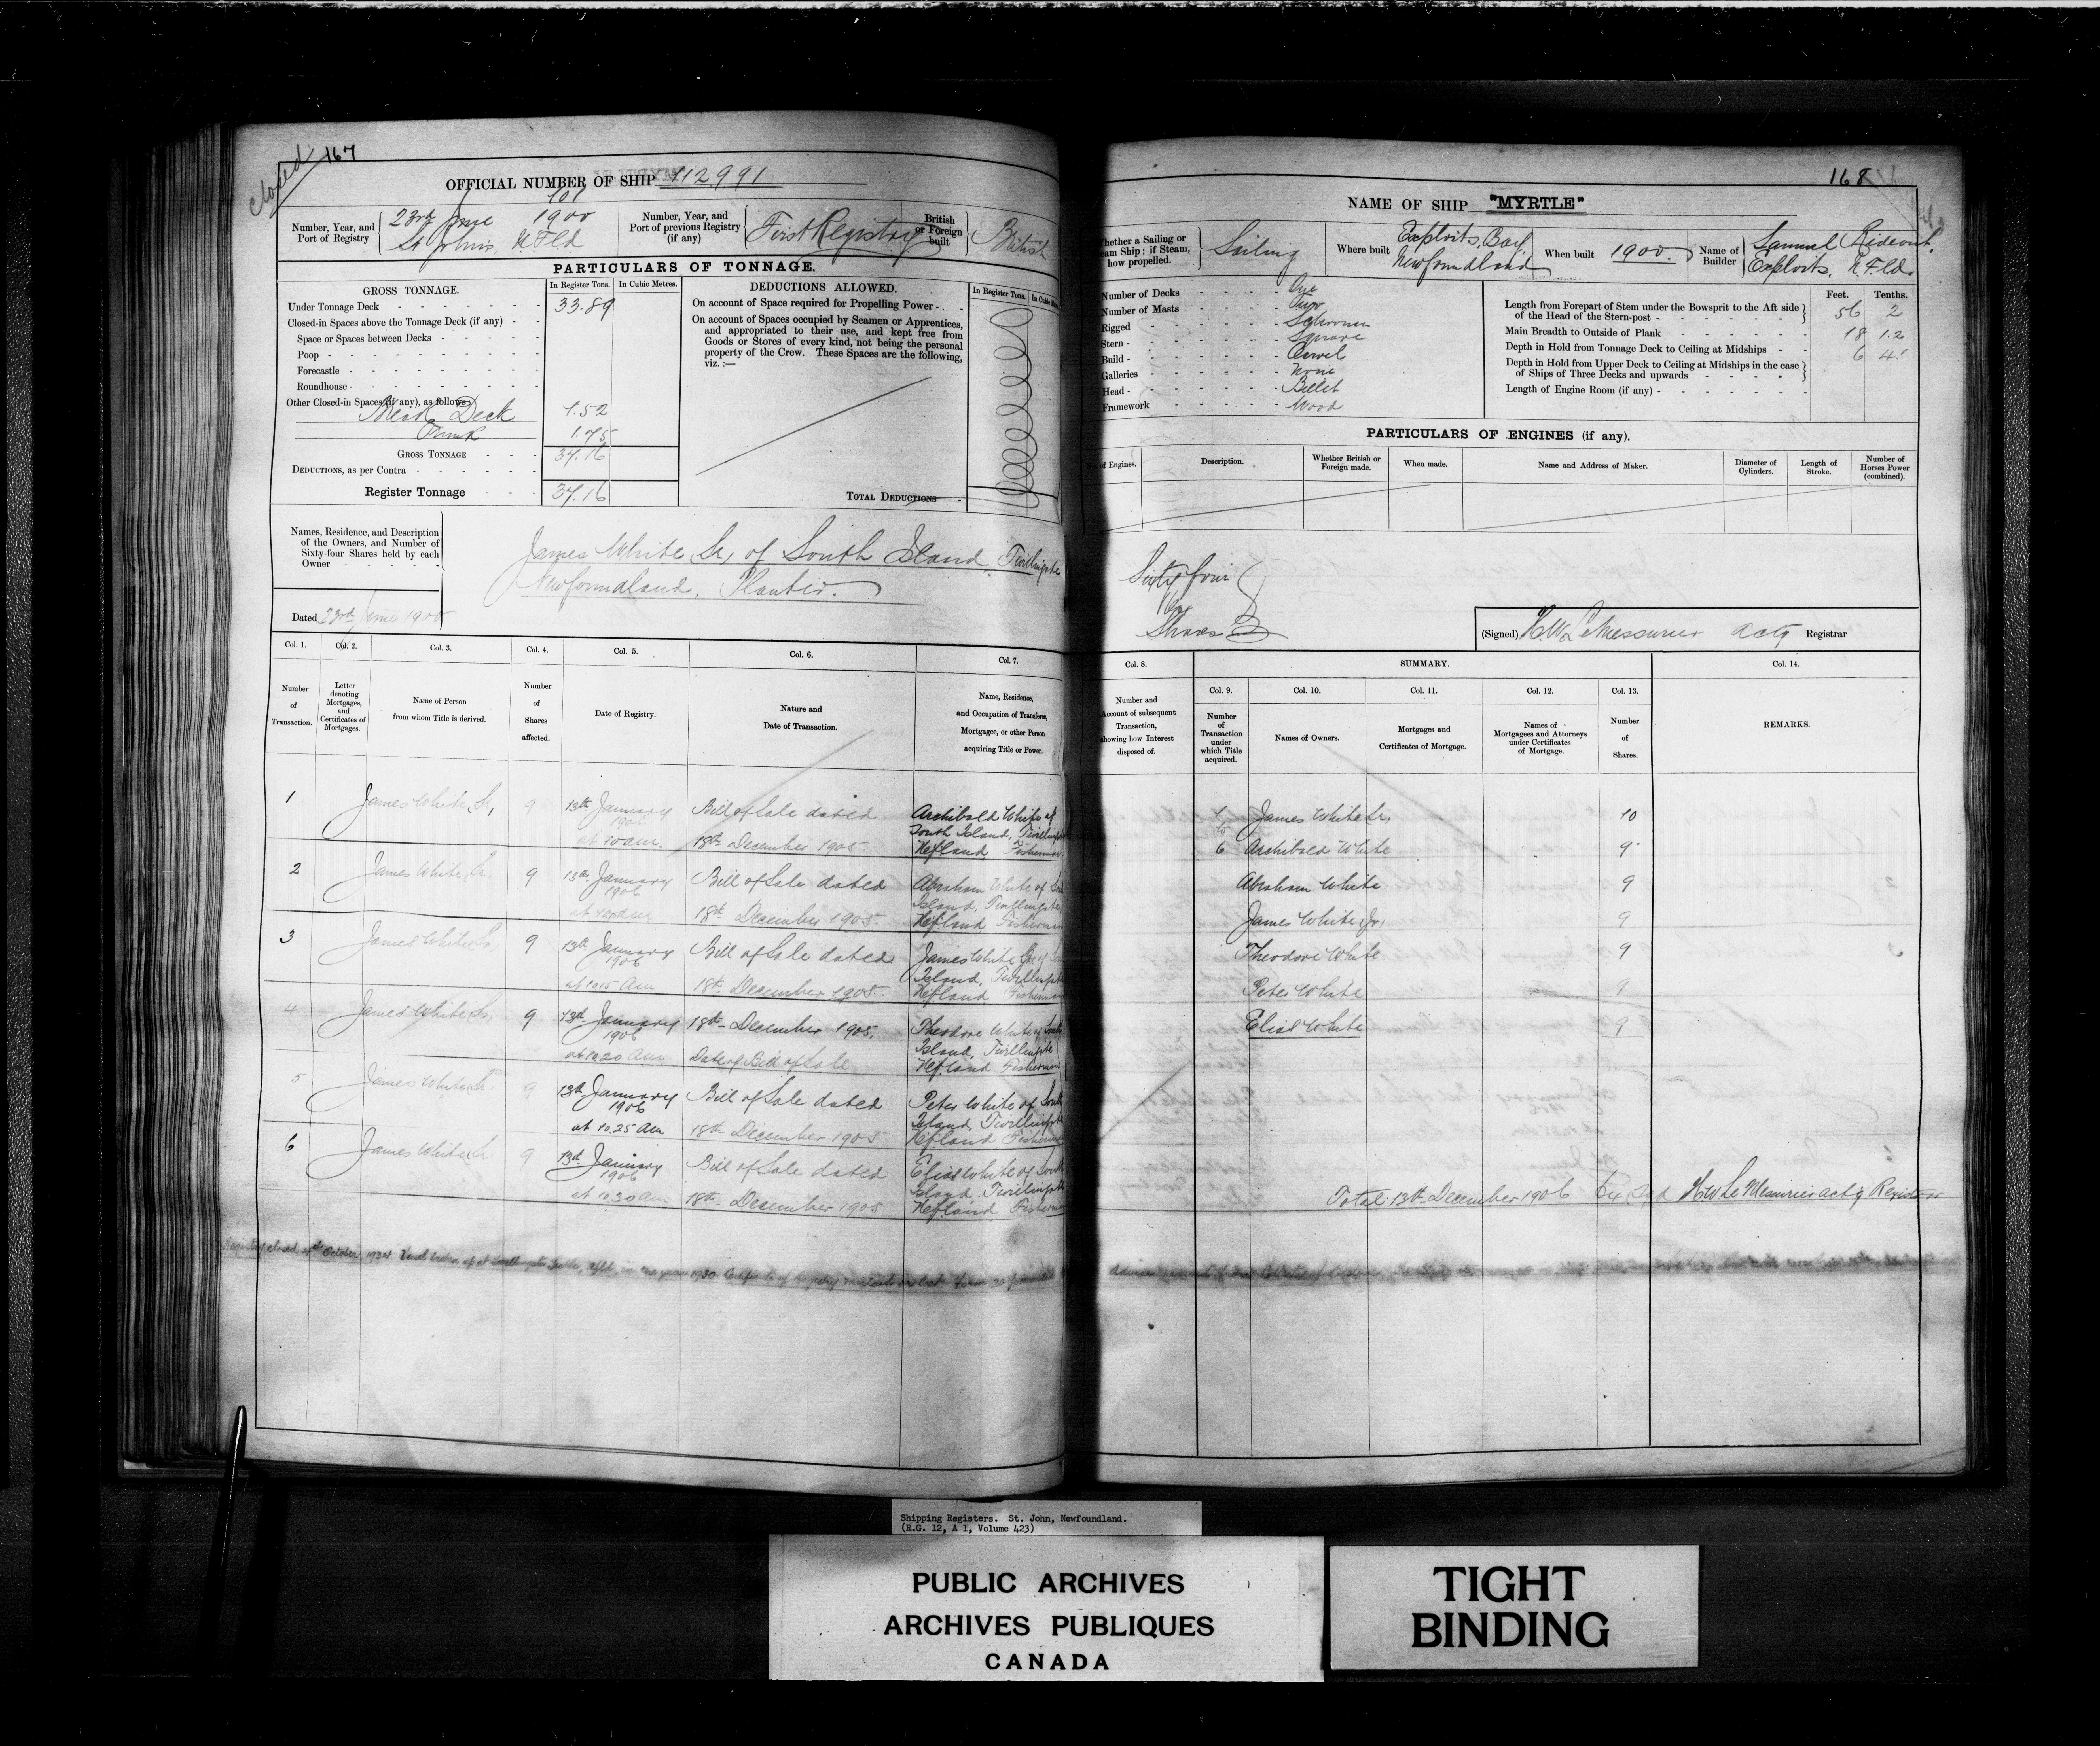 closed
167
OFFICIAL NUMBER OF SHIP 112991
Number, Year, and
Port of Registry
101
23rd June 1900
St Johns, N.F.ld
Number, Year, and
Port of previous Registry
(if any)
First Registry
British
or Foreign
built
British
PARTICULARS OF TONNAGE.
GROSS TONNAGE.
In Register Tons.
In Cubic Metres.
Under Tonnage Deck 33.89
Closed-in Spaces above the Tonnage Deck (if any)
Space or Spaces between Decks
Poop
Forecastle
Roundhouse
Other Closed-in Spaces (if any), as follows:
Break Deck 1.52
1.75
GROSS TONNAGE 37.16
DEDUCTIONS, as per Contra
Register Tonnage 37.16
DEDUCTIONS ALLOWED.
In Register Tons.
On account of Space required for Propelling Power
On account of Spaces occupied by Seamen or Apprentices,
and appropriated to their use, and kept free from
Goods or Stores of every kind, not being the personal
property of the Crew. These Spaces are the following,
viz. :—
TOTAL DEDUCTIONS
Names, Residence, and Description
of the Owners, and Number of
Sixty-four Shares held by each
Owner
James White Sr, of South Island Twillingate
Newfoundland. Planter.
Dated 23rd June 1900
Col. 1.
Col. 2.
Col. 3.
Col. 4.
Col. 5.
Col. 6.
Col. 7.
Number
of
Transaction.
Letter
denoting
Mortgages,
and
Certificates of
Mortgages.
Name of Person
from whom Title is derived.
Number
of
Shares
affected.
Date of Registry.
Nature and
Date of Transaction.
Name, Residence,
and Occupation of Transferee,
Mortgagee, or other Person
acquiring Title or Power.
1 James White Sr, 9 13th January 1906 at 10 am. Bill of Sale dated 18th December 1905 Archibald White of South Island, Twillingate Nefland Fisherman
2 James White Sr. 9 13th January 1906 Bill of Sale dated 18th December 1905. Abraham White of South Island, Twillingate Nefland Fisherman
3 James White Sr, 9 13th January 1906 at 10.15 Am Bill of Sale dated 18th December 1905. James White Jr of South Island, Twillingate Nefland Fisherman
4 James White Sr, 9 13th January 1906 at 10.20 Am 18th December 1905. Date of Bill of Sale Theodore White of South Island, Twillingate Nefland Fisherman
5 James White Sr. 9 13th January 1906 at 10.25 Am Bill of Sale dated 18th December 1905 Peter White of South Island, Twillingate Nefland Fisherman
6 James White Sr. 9 13th January 1906 at 10.30 am Bill of Sale dated 18th December 1905 Elias White of South Island, Twillingate Nefland Fisherman
Registry closed October, 1934 Vessel broken up at in the year 1930 Certificate of registry
168
NAME OF SHIP "MYRTLE"
hether a Sailing or
eam Ship; if Steam,
how propelled.
Sailing
Where built
Exploits, Bay,
Newfoundland
When built 1900.
Name of
Builder
Samuel Rideout.
Exploits, N.F.ld.
Number of Decks One
Number of Masts Two
Rigged Schooner
Stern Square
Build Carvel
Galleries None
Head Billet
Framework Wood
Feet. Tenths.
Length from Forepart of Stem under the Bowsprit to the Aft side
of the Head of the Stern-post 56 2
Main Breadth to Outside of Plank 18 1.2
Depth in Hold from Tonnage Deck to Ceiling at Midships 6 4
Depth in Hold from Upper Deck to Ceiling at Midships in the case
of Ships of Three Decks and upwards
Length of Engine Room (if any)
PARTICULARS OF ENGINES (if any).
of Engines.
Description.
Whether British or
Foreign made.
When made.
Name and Address of Maker.
Diameter of
Cylinders.
Length of
Stroke.
Number of
Horses Power
(combined).
Sixty four
Shares
(Signed) H.W. LeMessurier Actg Registrar
Col. 8.
SUMMARY.
Col. 14.
Col. 9.
Col. 10.
Col. 11.
Col. 12.
Col. 13.
Number and
Account of subsequent
Transaction,
howing how Interest
disposed of.
Number
of
Transaction
under
which Title
acquired.
Names of Owners.
Mortgages and
Certificates of Mortgage.
Names of
Mortgagees and Attorneys
under Certificates
of Mortgage.
Number
of
Shares.
REMARKS.
1 James White Sr, 10
to
6 Archibald White 9
Abraham White 9
James White Jr, 9
Theodore White 9
Peter White 9
Elias White 9
Total 13th December 1906 64 Sgd H W Le Messurier actg Registrar
Shipping Registers. St. John, Newfoundland.
(R.G. 12, A 1, Volume 423)
PUBLIC ARCHIVES
ARCHIVES PUBLIQUES
CANADA
TIGHT
BINDING